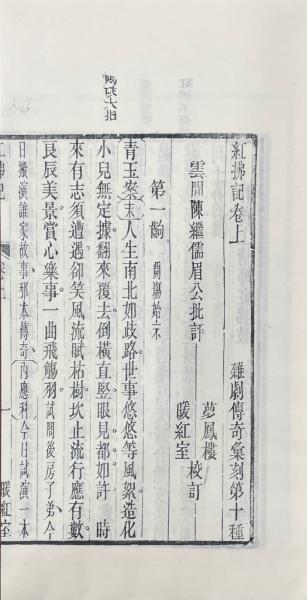 紅拂記卷上　雜劇傳奇彙刻第十種
雲間陳繼儒眉公批評
夢鳳樓
暖紅室 校訂
第一齣
青玉案末人生南北如歧路世事悠悠等風絮造化
小兒無定據翻來覆去倒橫直豎眼見都如許　時
來有志須遭遇卻笑風流賦枯樹坎止流行應有數
良辰美景賞心樂事一曲飛觴羽試問後房子弟今
日搬演誰家故事那本傳奇內應科今日試演一本